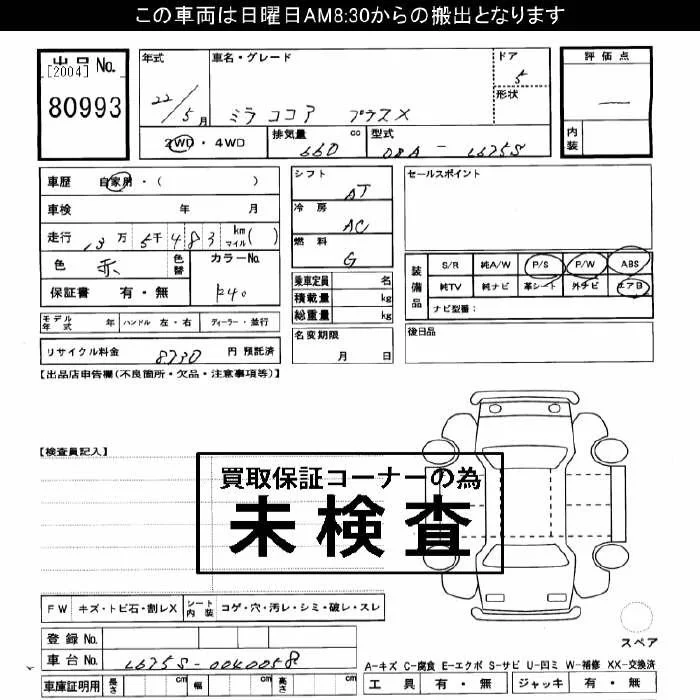 この車両は日曜日AM8:30からの搬出となります
出品No.
[2004]
80993
年式
22/5月
車名・グレード
ミラココア プラスX
ドア
5
形状
評価点
—
内装
2WD・4WD
排気量 cc
660
型式
DBA-L675S
車歴 自家用・( )
車検 年 月
走行 13万5千483 km マイル( )
色 赤
色替
カラーNo.
R40
保証書 有・無
シフト
AT
冷房
AC
燃料
G
乗車定員 名
積載量 kg
総重量 kg
名変期限
月 日
セールスポイント
装備品
S/R 純A/W P/S P/W ABS
純TV 純ナビ 革シート 外ナビ エアB
ナビ型番:
後日品
モデル年式 年 ハンドル 左・右 ディーラー・並行
リサイクル料金 8730 円 預託済
【出品店申告欄(不良箇所・欠品・注意事項等)】
【検査員記入】
買取保証コーナーの為
未検査
FW キズ・トビ石・割レX シート内装 コゲ・穴・汚レ・シミ・破レ・スレ
登録No.
車台No. L675S-0040058
車庫証明用 長さ cm 幅 cm 高さ cm
スペア
A-キズ C-腐食 E-エクボ S-サビ U-凹ミ W-補修 XX-交換済
工具 有・無 ジャッキ 有・無